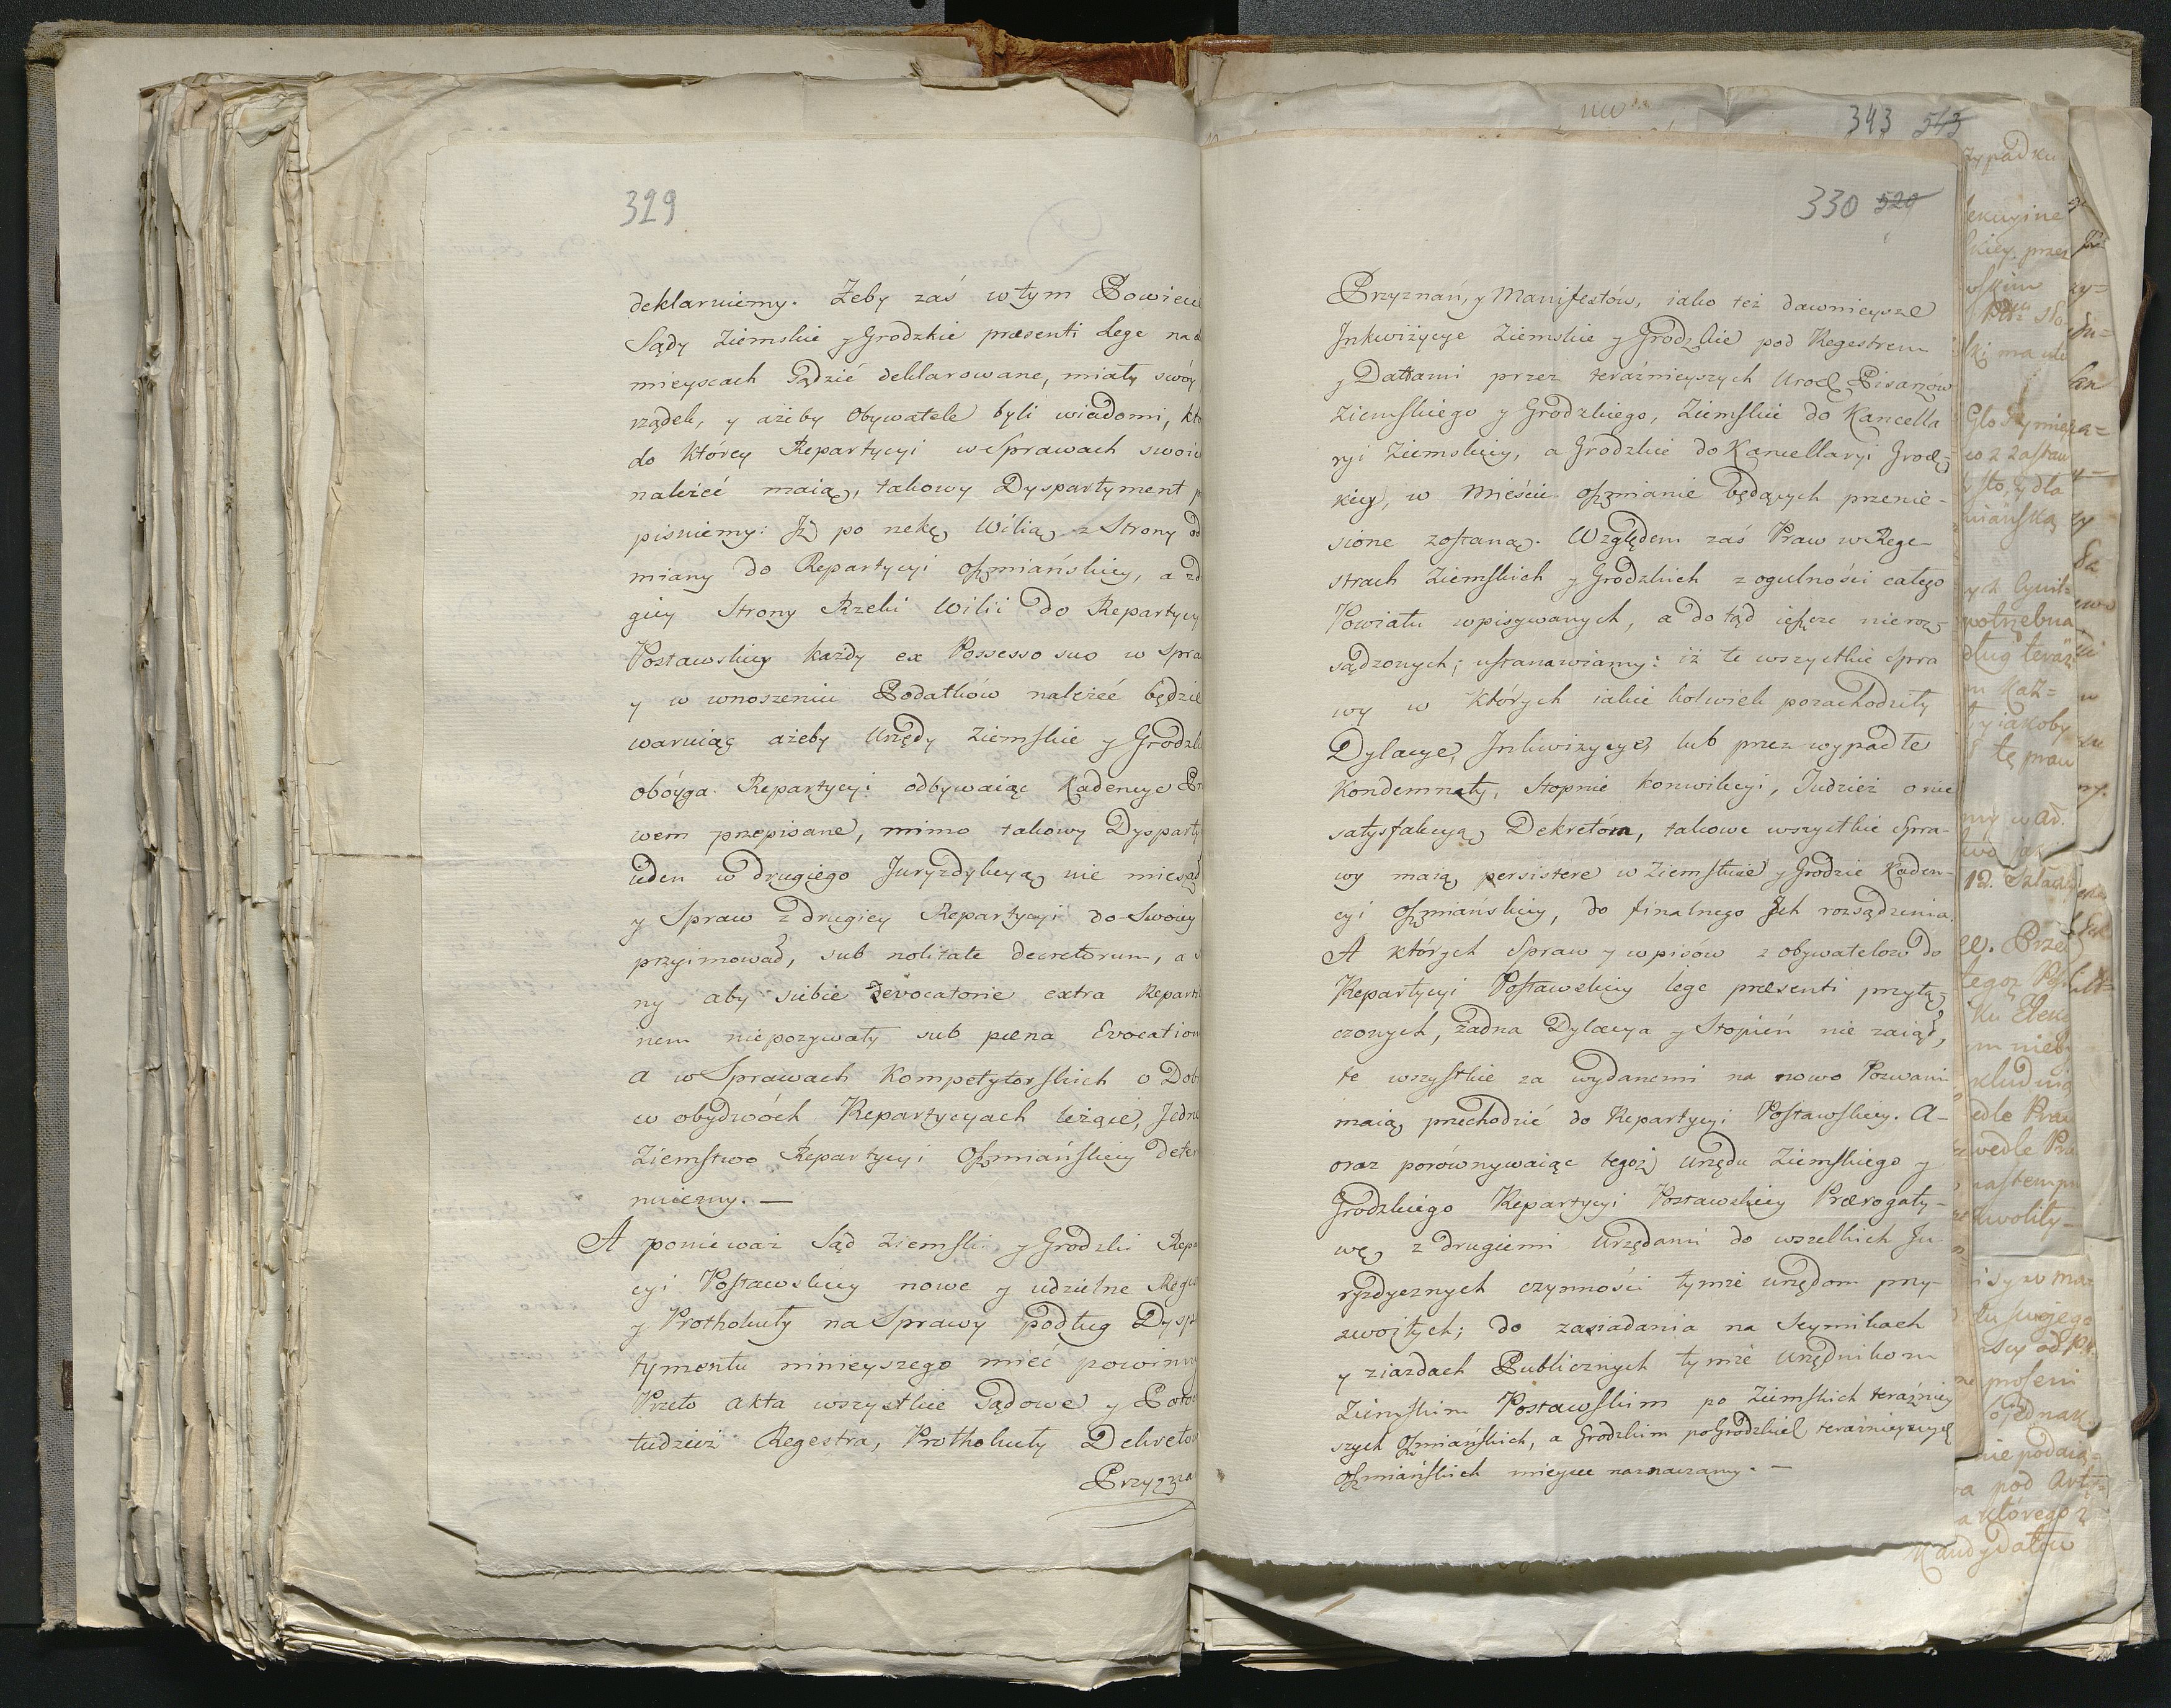 329
deklaruiemy. Żeby zaś w tym Powiec
Sądy Ziemskie y Grodzkie præsenti Lege na d
mieyscach Sądzić deklarowane, miały swóy
rządek, y ażeby Obywatele byli wiadomi, kto
do którey Repartycyi w Sprawach swoic
należeć maią, takowy Dyspartyment p
pisuiemy: Iż po rekę Wilią z Strony od
miany do Repartycyi Oszmiańskiey, a z d
giey Strony Rzeki Wilii do Repartycy
Postawskiey każdy ex Possesso suo w Spra
y w wnoszeniu Podatków należeć będzie
waruiąc ażeby Urzędy Ziemskie y Grodzk
obóyga Repartycyi odbywaiąc Kadencye Pr
wem przepisane, mimo takowy Dysparty
ieden w drugiego Juryzdykcyą nie miesza
y Spraw z drugiey Repartycyi do Swoiey
przyimował, sub nolitate decretorum, a s
ny aby siebie evocatorie extra Reparti
nem niepozywały sub pæna Evocation
a w Sprawach Kompetytorskich o Dob
w obydwóch Repartycyach leżące, Jedno
Ziemstwo Repartycyi Oszmiańskiey deter
nuiemy. —
A ponieważ Sąd Ziemski y Grodzki Repa
cyi Postawskiey nowe y udzielne Rege
y Prothokuły na Sprawy podług Dyspa
tymentu ninieyszego mieć powinny
Przeto Akta wszystkie Sądowe y Poto
tudzież Regestra, Prothokuły Dekretow
Przyzna
343 543
330 529
Przyznań, y Manifestów, iako też dawnieysze
Inkwizycye Ziemskie y Grodzkie pod Regestrem
y Dattami przez teraźnieyszych Urod Pisarzów
Ziemskiego y Grodzkiego, Ziemskie do Kancella
ryi Ziemskiey, a Grodzkie do Kancellaryi Grodz
kiey, w Mieście Oszmianie będących przenie-
sione zostaną. Względem zaś Praw w Rege-
strach Ziemskich y Grodzkich z ogulności całego
Powiatu wpisywanych, a do tąd ieszcze nieroz-
sądzonych; ustanawiamy: iż te wszystkie Spra
wy w których iakie kolwiek pozachodziły
Dylacye, Inkwizycye, lub przez wypadłe
Kondemnaty, Stopnie konwikcyi, Tudzież o nie
satysfakcyą Dekretóm, takowe wszystkie Spra-
wy maią persistere w Ziemstwie y Grodzie Kaden-
cyi Oszmiańskiey, do finalnego Ich rozsądzenia.
A których Spraw y wpisów z obywatelow do
Repartycyi Postawskiey lege præsenti przyłą-
czonych, żadna Dylacya y Stopień nie zaiął,
te wszystkie za wydanemi na nowo Pozwami
maią przechodzić do Repartycyi Postawskiey. A-
oraz porównywaiąc tegoż Urzędu Ziemskiego y
Grodzkiego Repartycyi Postawskiey Prærogaty-
wę z drugiemi Urzędami do wszelkich Ju
ryzdycznych czynności tymże urzędom przy-
zwoitych; do zasiadania na Seymikach
y ziazdach Publicznych tymże Urzędnikom
Ziemskim Postawskim po Ziemskich teraźniey
szych Oszmiańskich, a Grodzkim po Grodzkich teraźnieyszych
Oszmiańskich mieysce naznaczamy. —
Kandydatów